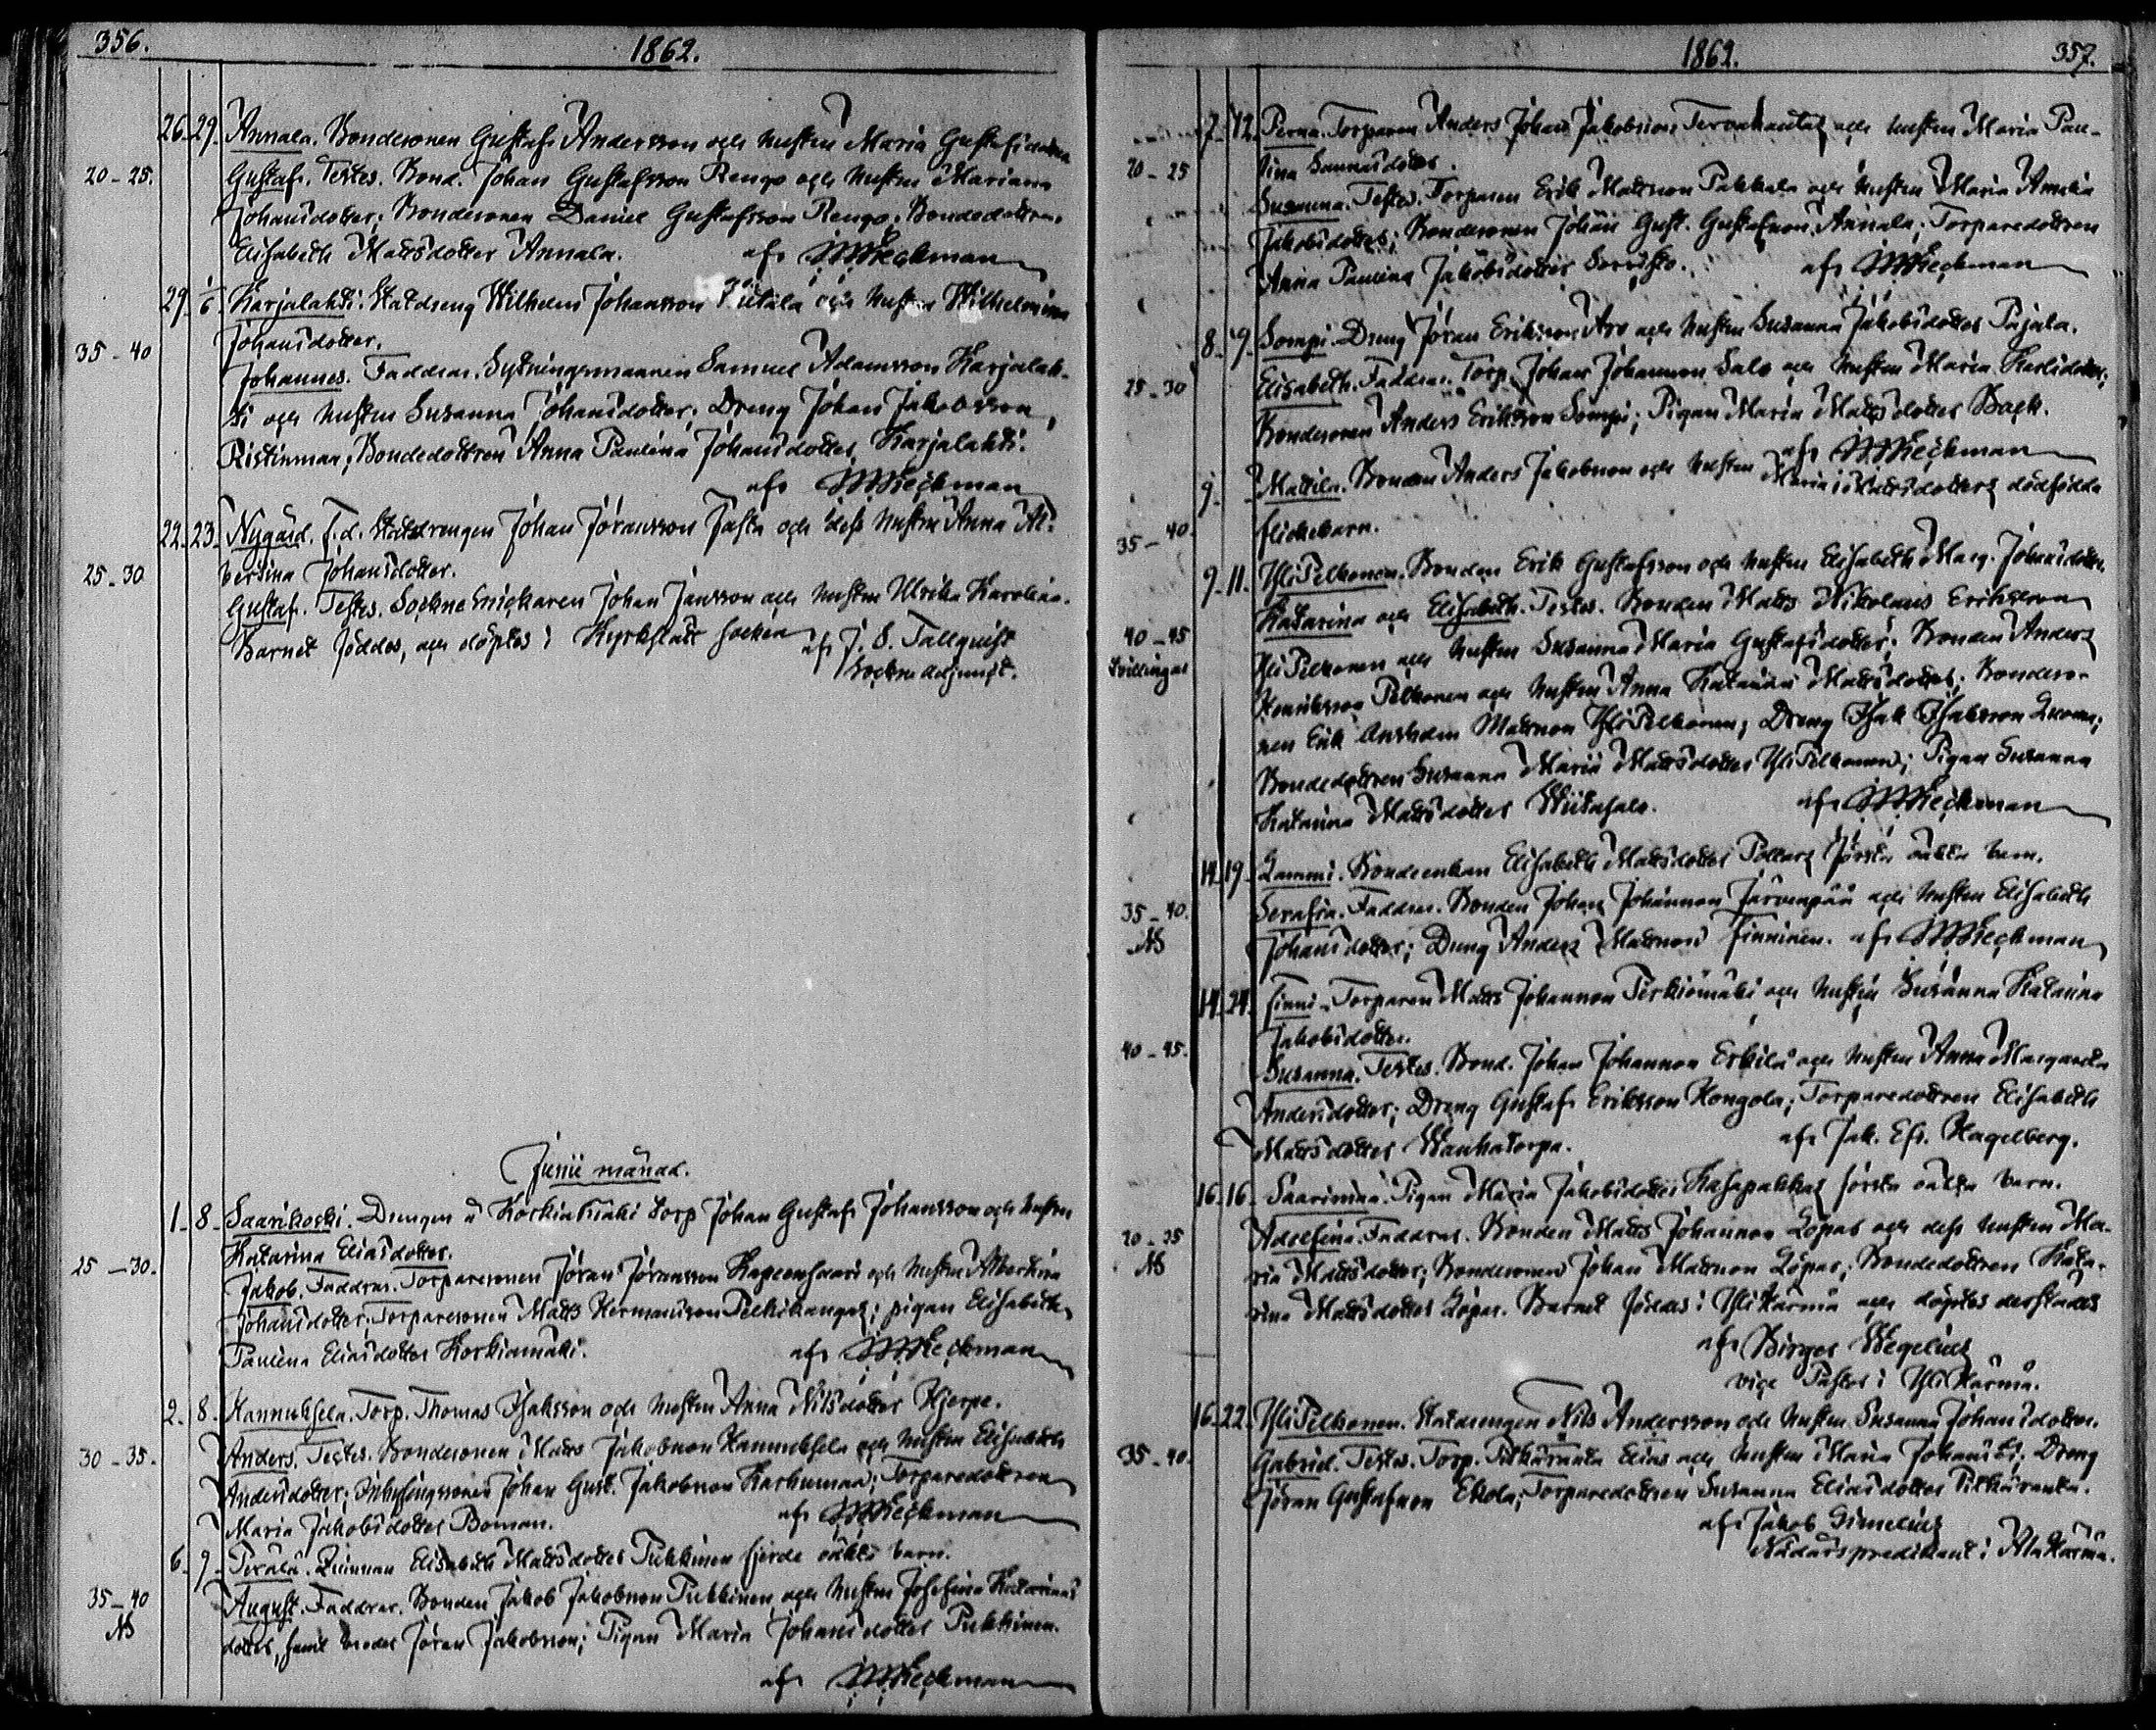 356.
1862.
26. 29. Annala. Bondesonen Gustaf Andersson och hustrun Maria Gustafsdotter
20-25. Gustaf. Testes. Bond. Johan Gustafsson Rengo och hustrun Mariana
Johansdotter; Bondesonen Daniel Gustafsson Rengo. Bondedottren
Elisabeth Mattsdotter Annala. af
29. 6. Karjalahti. Statdreng Wilhelm Johansson och hustrun Wilhelmina
Johansdotter.
35-40 Johannes. Faddrar. Sytningsmannen Samuel Adamsson Karjalah-
ti och hustrun Susanna Johansdotter; Dreng Johan Jakobsson
Ristimaa; Bondedottren Anna Paulina Johansdotter Karjalahti.
af
22. 23. Nygård. f.d. Statdrengen Johan Jöransson och dess hustru Anna Al-
bertina Johansdotter.
25-30 Gustaf. Testes. Sockne Snickaren Johan Jansson och hustrun Ulrika Karolina.
Barnet föddes, och döptes i Kyrkslätt socken af J. S. Tallquist
Sockneadjunct.
Junii månad.
1. 8. Saarikoski. Drengen å torp Johan Gustaf Johansson och hustrun
Katarina Eliasdotter.
25-30. Jakob. Faddrar. Torparesonen Jöran Jöransson och hustrun Albertina
Johansdotter; Torparesonen Matts Hermansson; pigan Elisabeth
Paulina Eliasdotter Korkiamäki. af
2. 8. Hannuksela. Torp. Thomas Isaksson och hustrun Anna Nilsdotter Hjerpe.
30-35. Anders. Testes. Bondesonen Matts Jakobsson Hannuksela och hustrun Elisabeth
Andersdotter; Johan Gust. Jakobsson Karhumaa; Torparedottren
Maria Jakobsdotter Boman. af
6. 9. Perälä. Qvinnan Elisabeth Mattsdotter Pukkinen fjerde oäkta barn.
35-40 August. Faddrar. Bonden Jakob Jakobsson Pukkinen och hustrun Josefina Katarina
NB dotter, samt Jöran Jakobsson; Pigan Maria Johansdotter Pukkinen.
af
1862.
357.
7. 12. Perna. Torparen Anders Johan Jakobsson och hustrun Maria Pau-
20-25 lina
Susanna. Testes. Torparen Erik Mattsson Pakkala och hustrun Maria
Jakobsdotter; Bondesonen Johan Gust. Gustafsson Annala; Torparedottren
Anna Paulina Jakobsdotter af
8. 9. Sompi. Dreng Jöran Eriksson och hustrun Susanna Jakobsdotter Pajala.
25-30 Elisabeth. Faddrar. Torp. Johan Johansson Salo och hustrun Maria Karlsdotter;
Bondesonen Anders Eriksson Sompi; Pigan Maria Mattsdotter Back.
af
9. Mattila. Bonden Anders Jakobsson och hustrun Maria Mattsdotters dödfödda
35-40. flickebarn.
9. 11. YliPelkonen. Bonden Erik Gustafsson och hustrun Elisabeth Marg. Johansdotter.
Katarina och Elisabeth. Testes. Bonden Matts Nikolaus Eriksson
40-45 YliPelkonen och hustrun Susanna Maria Gustafsdotter; Bonden Anders
Tvillingar Henriksson Pelkonen och hustrun Anna Katarina Mattsdotter; Bondeso-
nen Erik Mattsson YliPelkonen; Dreng Isak Isaksson
Bondedottren Susanna Maria Mattsdotter YliPelkonen; Pigan Susanna
Katarina Mattsdotter Wiitasalo. af
14. 19. Lammi. Bondeenkan Elisabeth Mattsdotter första oäkta barn.
35-40. Serafia. Faddrar. Bonden Johan Johansson Järvenpää och hustrun Elisabeth
NB Johansdotter; Dreng Anders Mattsson Finninen. af
14. 24. Finni. Torparen Matts Johansson Perkiömäki och hustrun Susanna Katarina
Jakobsdotter.
40-45. Susanna. Testes. Bond. Johan Johansson Erkilä och hustrun Anna Margareta
Andersdotter; Dreng Gustaf Eriksson Kongola; Torparedottren Elisabeth
Mattsdotter Wanhatorpa. af Jak. Ef. Hagelberg.
16. 16. Saarimaa. Pigan Maria Jakobsdotter första oäkta barn.
20-25 Adolfina. Faddrar. Bonden Matts Johansson Löpar och dess hustru Ma-
NB ria Mattsdotter; Bondesonen Johan Mattsson Löpar; Bondedottren Kata-
rina Mattsdotter Löpar. Barnet föddes i YliHärmä och döptes derstädes
af Birger Wegelius
vice Pastor i YliHärmä.
16. 22. YliPelkonen. Statdrengen Nils Andersson och hustrun Susanna Johansdotter.
35-40. Gabriel. Testes. Torp. Pitkäranta Elias och hustrun Maria Johansd:r; Dreng
Jöran Gustafsson Ekola; Torparedottren Susanna Eliasdotter Pitkäranta.
af Jakob Simelius
Nådårspredikant i AlaHärmä.